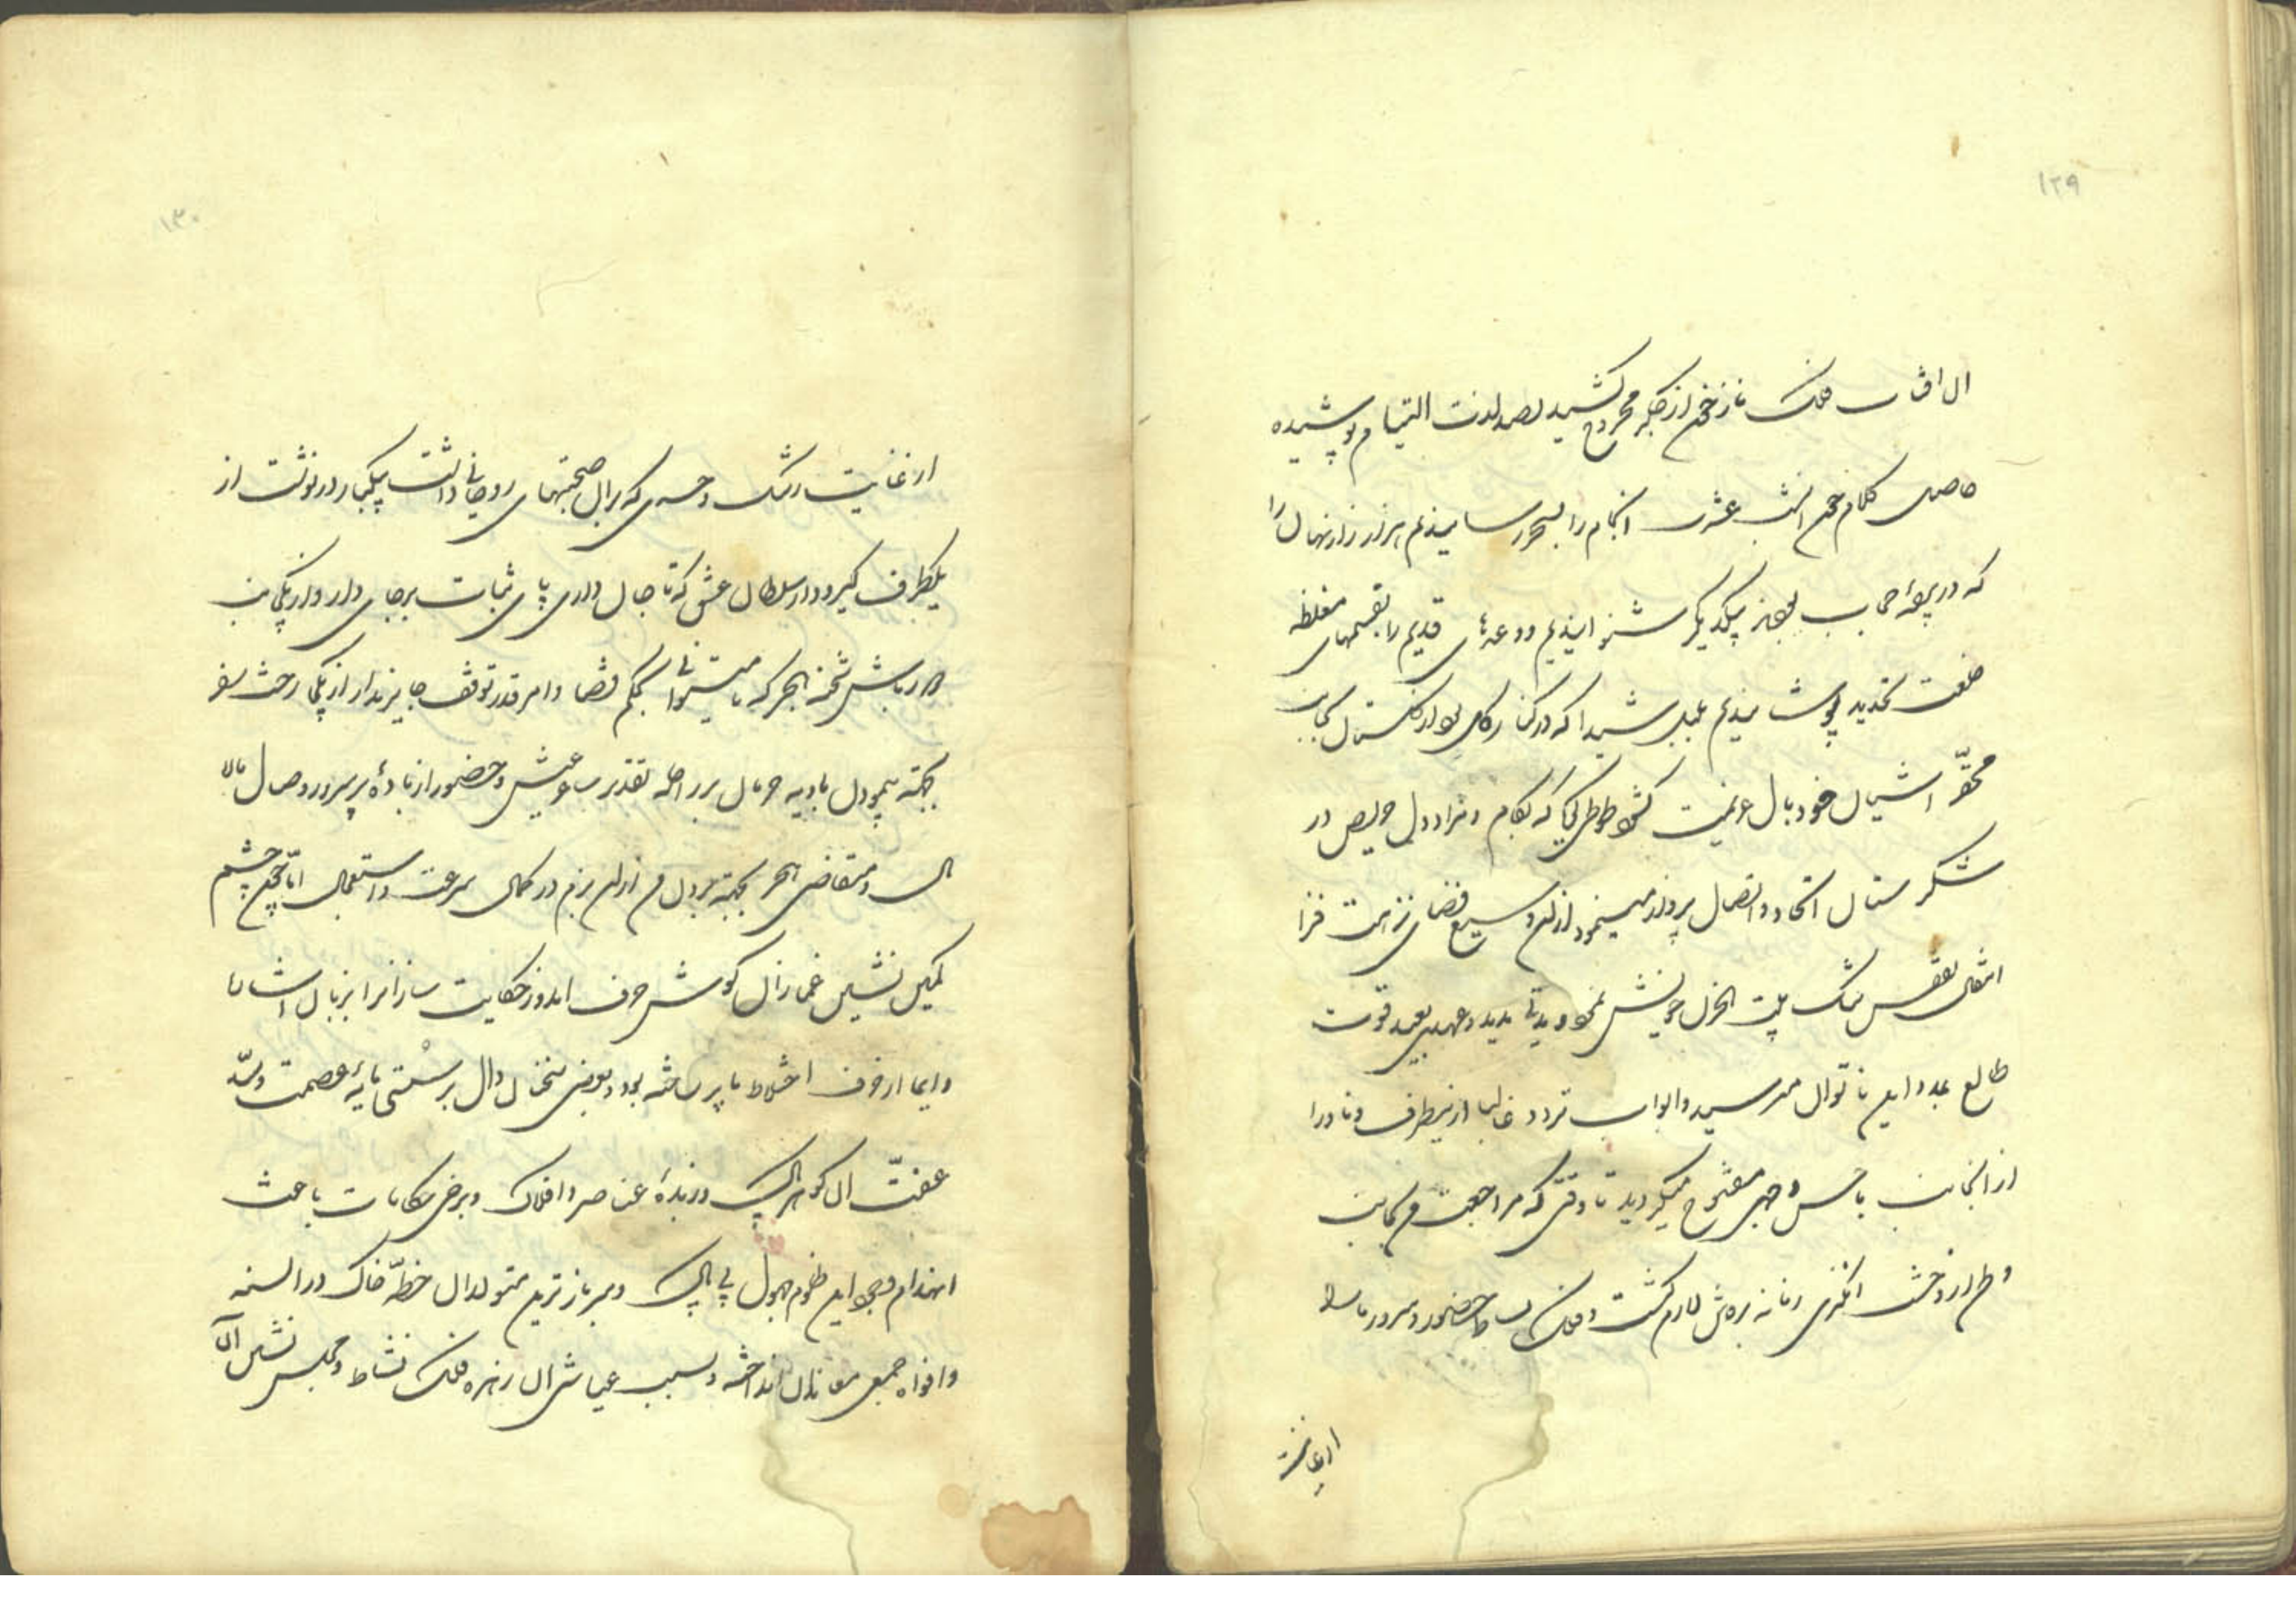 ۱۲۹
آن آفتاب فلک ناز زخمی از جگر مجروح کشید بصد لذت التیام پوشیده
حاصل کلام جمع انشب عشرت انجام را بسحر رسانیدیم هزار راز نهان را
که در پرده حجاب بود بیکدیگر شنوانیدیم وعدهای قدیم را بقسمهای مغلظه
خلعت تجدید پوشانیدیم بلبل شیدا که در کنار گل بود از گلستان بجانب
محقر آشیان خود بال عزیمت گشود طوطی که بکام و مراد دل حریص در
شکرستان اتحاد و اتصال پرواز مینمود از آن وسیع فضای نزهت فزا
انتقال بقفس تنگ بیت الحزن خویش نمود مدتی مدید و عهدی بعید قوت
طالع بمدد این ناتوان میرسید و ابواب تردد غالبا ازینطرف و نادرا
از آنجانب باحسن وجهی مفتوح میگردید تا وقتی که مراجعت بجانب
وطن از وحشت انگیزی زمانه برمن لازم گشت و فلک بساط حضور و سرور ما را
از غایت
۱۳۰
از غایت رشک و حسدی که بران صحبتهای روحانی داشت بیکبار درنوشت از
یکطرف گیرودار سلطان عشق که تا جان داری پای ثبات برجای دار و از یکجانب
دورباش شحنه هجر که نامیتوانی بحکم قضا و امر قدر توقف جایز ندار از یکی رخت سفر
بجهة پیمودن بادیه حرمان بر راحله تقدیر بسته و عیش و حضور از باده پرسرور وصال مالا
مال و متقاضی هجر بجهة بردن من ازان بزم در کمال سرعت و استعجال اما چمع چشم
کمین نشین غمازان گوش حرف اندوز حکایت سازانرا بزبان اشارت
وایما از حرف اختلاط ما پر ساخته بود و بعضی سخنان دال بر سستی پایه عصمت و سد
عفت آن گوهر پاک و زبده عناصر و افلاک و برخی حکایات باعث
انهدام وجود این ظلوم جهول بی باک و سرباز ترین متولدان خطه خاک در السنه
وافواه جمعی معاندان انداخته و بسبب عیاشی آن زهره فلک نشاط و مجلس نشین آن